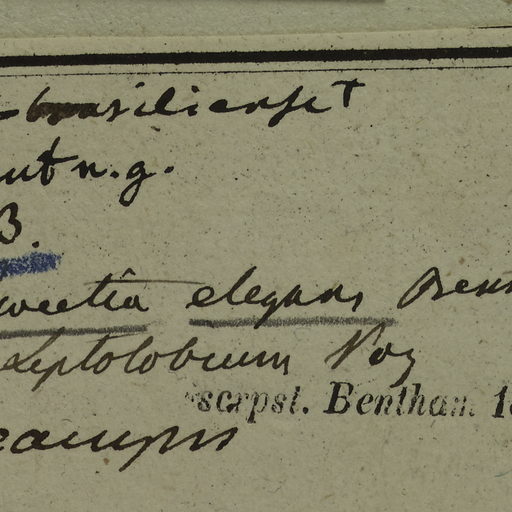 brasiliense †
aut n. g.
B.
weetia elegans Benth
Leptolobium Vog
scrpst. Bentham 18
campis